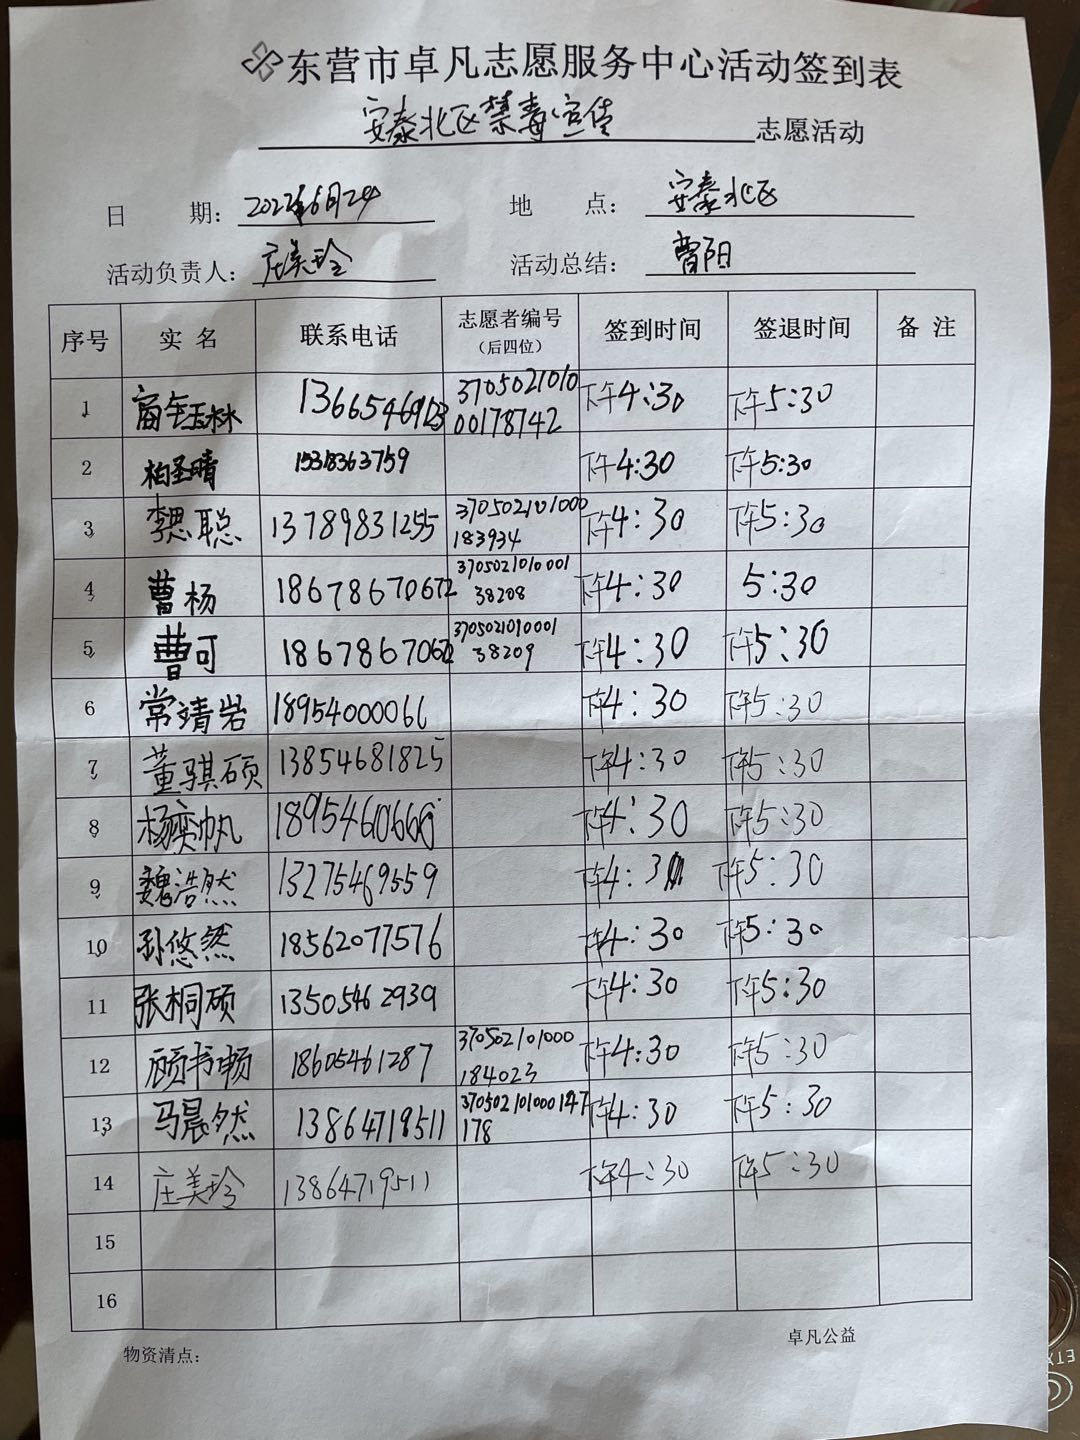 东营市卓凡志愿服务中心活动签到表
安泰北区禁毒宣传 志愿活动
日 期： 2022年6月24 地 点： 安泰北区
活动负责人： 庄美玲 活动总结： 曹阳
序号 实 名 联系电话 志愿者编号（后四位） 签到时间 签退时间 备 注
1 下午4:30 下午5:30
2 柏圣晴 15318363759 下午4:30 下午5:30
3 李思聪 13789831255 370502101000183934 下午4:30 下午5:30
4 曹杨 18678670672 370502101000138208 下午4:30 5:30
5 曹可 370502101000138209 下午4:30 下午5:30
6 常靖岩 18954000066 下午4:30 下午5:30
7 董骐硕 13854681825 下午4:30 下午5:30
8 杨奕帆 下午4:30 下午5:30
9 魏浩然 13275469559 下午4:30 下午5:30
10 孙悠然 18562077576 下午4:30 下午5:30
11 张桐硕 13505462939 下午4:30 下午5:30
12 顾书畅 18605461287 370502101000184023 下午4:30 下午5:30
13 马晨然 13864719511 370502101000147178 下午4:30 下午5:30
14 庄美玲 13864719511 下午4:30 下午5:30
15
16
物资清点： 卓凡公益